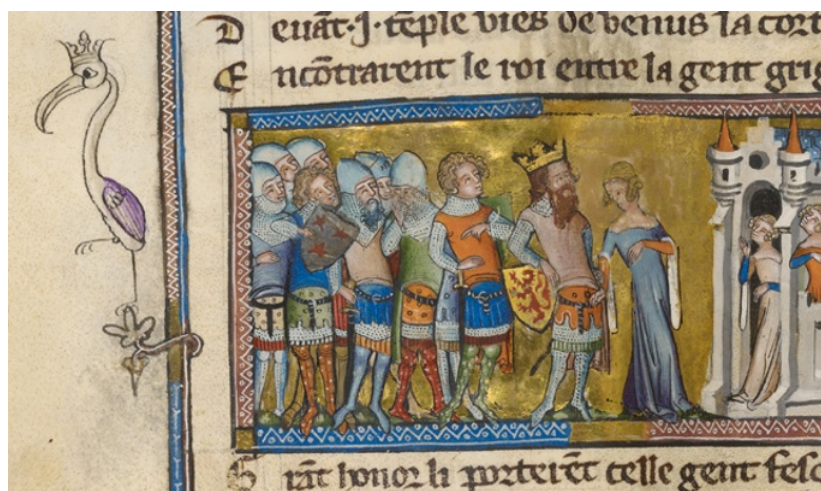 D euāt·J·tēple vies de venus la cort
E ncōtrarent le roi entre la gent grig
G rāt honor li porterēt celle gent fesc